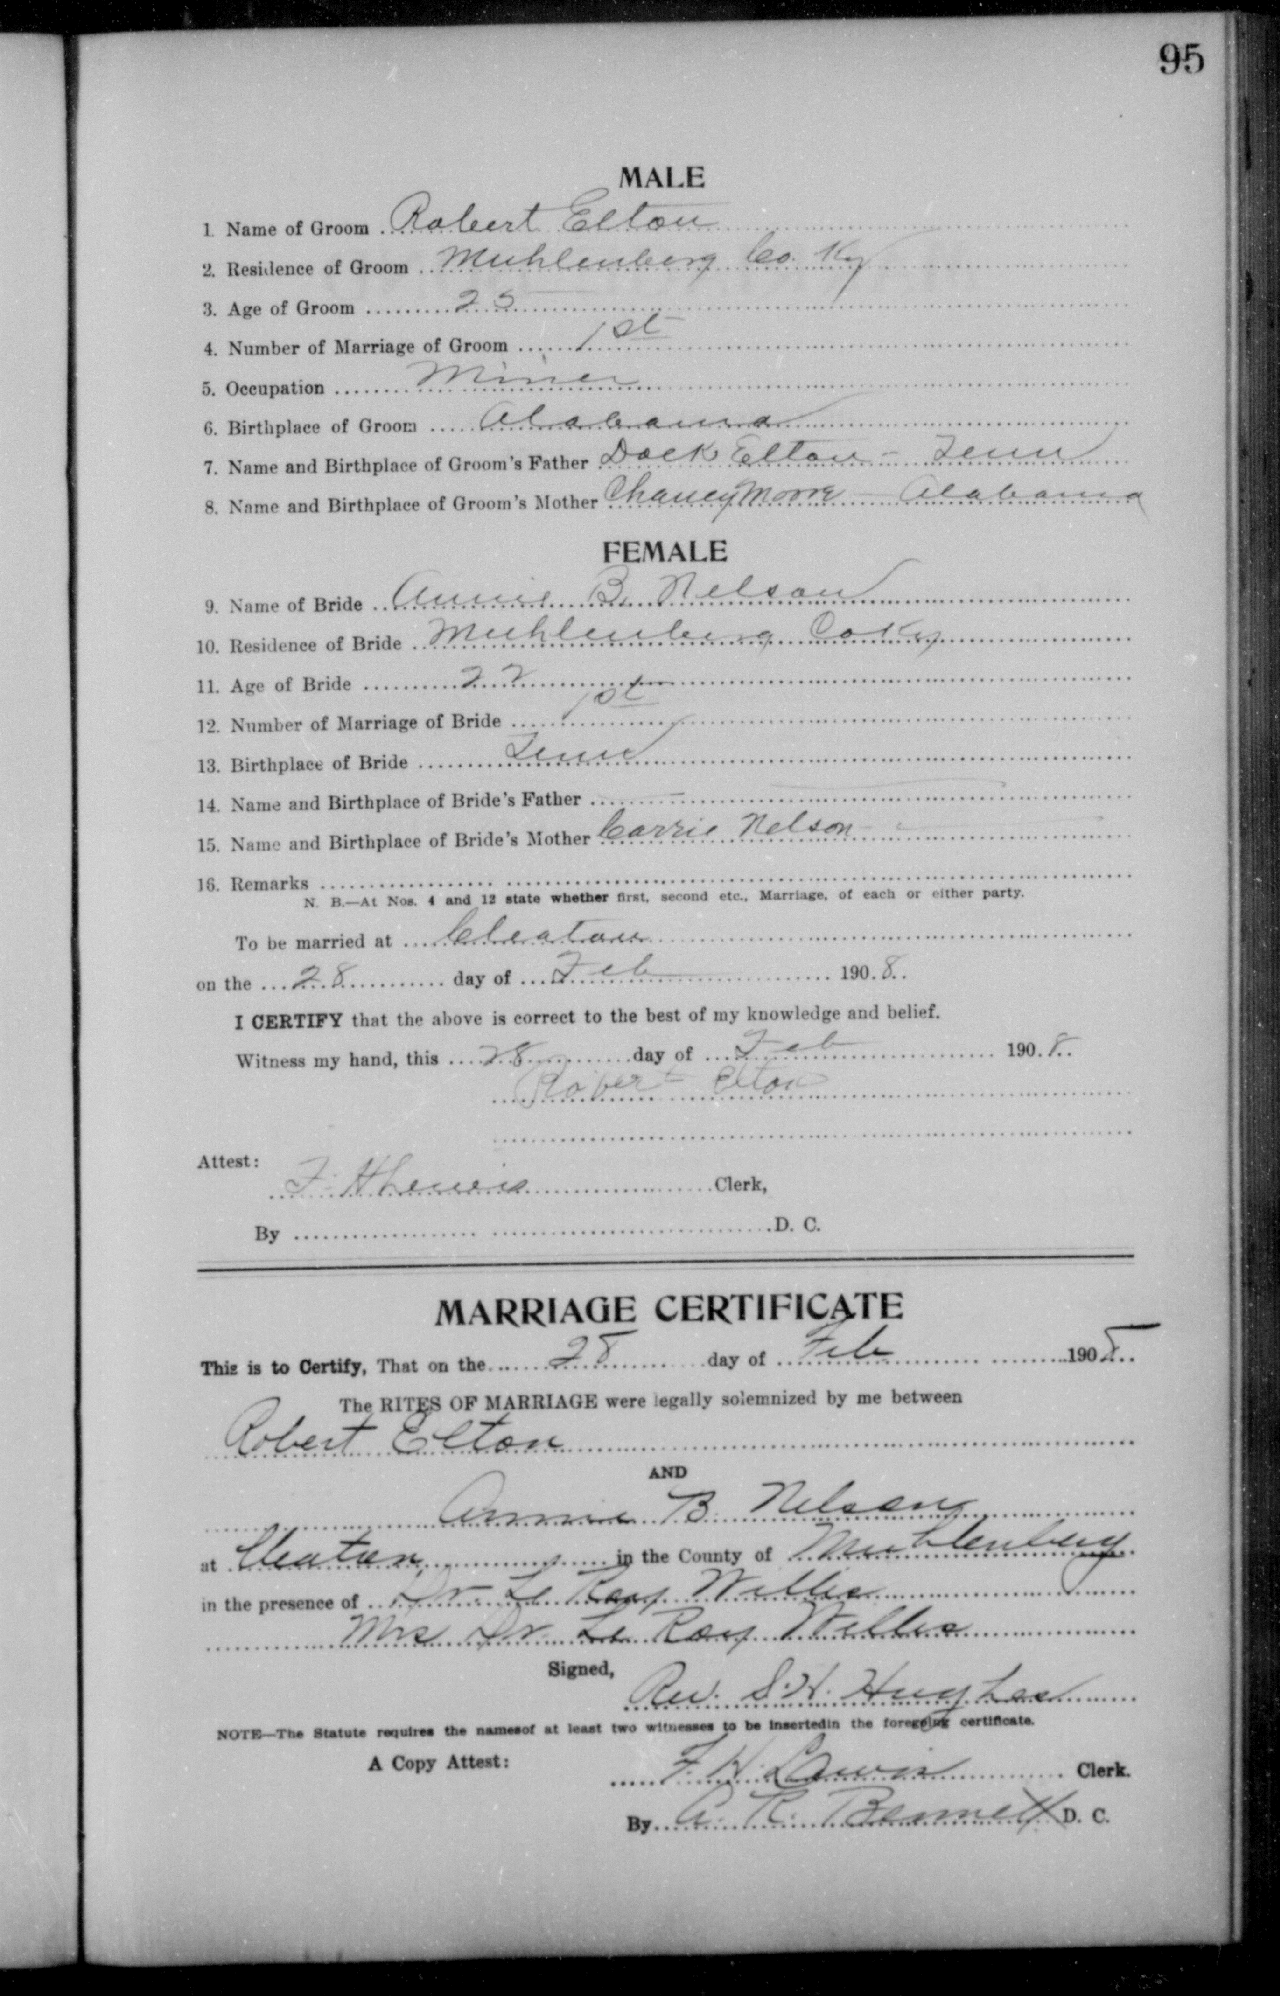 95
MALE
1. Name of Groom Robert Elton
2. Residence of Groom Muhlenberg Co. Ky
3. Age of Groom 25
4. Number of Marriage of Groom 1st
5. Occupation Miner
6. Birthplace of Groom Alabama
7. Name and Birthplace of Groom's Father Dock Elton - Tenn
8. Name and Birthplace of Groom's Mother Chaney Moore - Alabama
FEMALE
9. Name of Bride Annie B. Nelson
10. Residence of Bride Muhlenberg Co Ky
11. Age of Bride 22
12. Number of Marriage of Bride 1st
13. Birthplace of Bride Tenn
14. Name and Birthplace of Bride's Father —
15. Name and Birthplace of Bride's Mother Carrie Nelson -
16. Remarks
N. B.—At Nos. 4 and 12 state whether first, second etc., Marriage, of each or either party.
To be married at Cleaton
on the 28 day of Feb 1908.
I CERTIFY that the above is correct to the best of my knowledge and belief.
Witness my hand, this 28 day of Feb 1908.
Robert Elton
Attest:
F. H Lewis Clerk,
By D. C.
MARRIAGE CERTIFICATE
This is to Certify, That on the 28 day of Feb 1908.
The RITES OF MARRIAGE were legally solemnized by me between
Robert Elton
AND
Annie B. Nelson
at Cleaton in the County of Muhlenberg
in the presence of Dr. Le Roy Willis
Mrs Dr. Le Roy Willis
Signed,
Rev. S. H. Hughes
NOTE—The Statute requires the namesof at least two witnesses to be insertedin the foregoing certificate.
A Copy Attest:
F. H. Lewis Clerk.
By A. R. Bennett D. C.